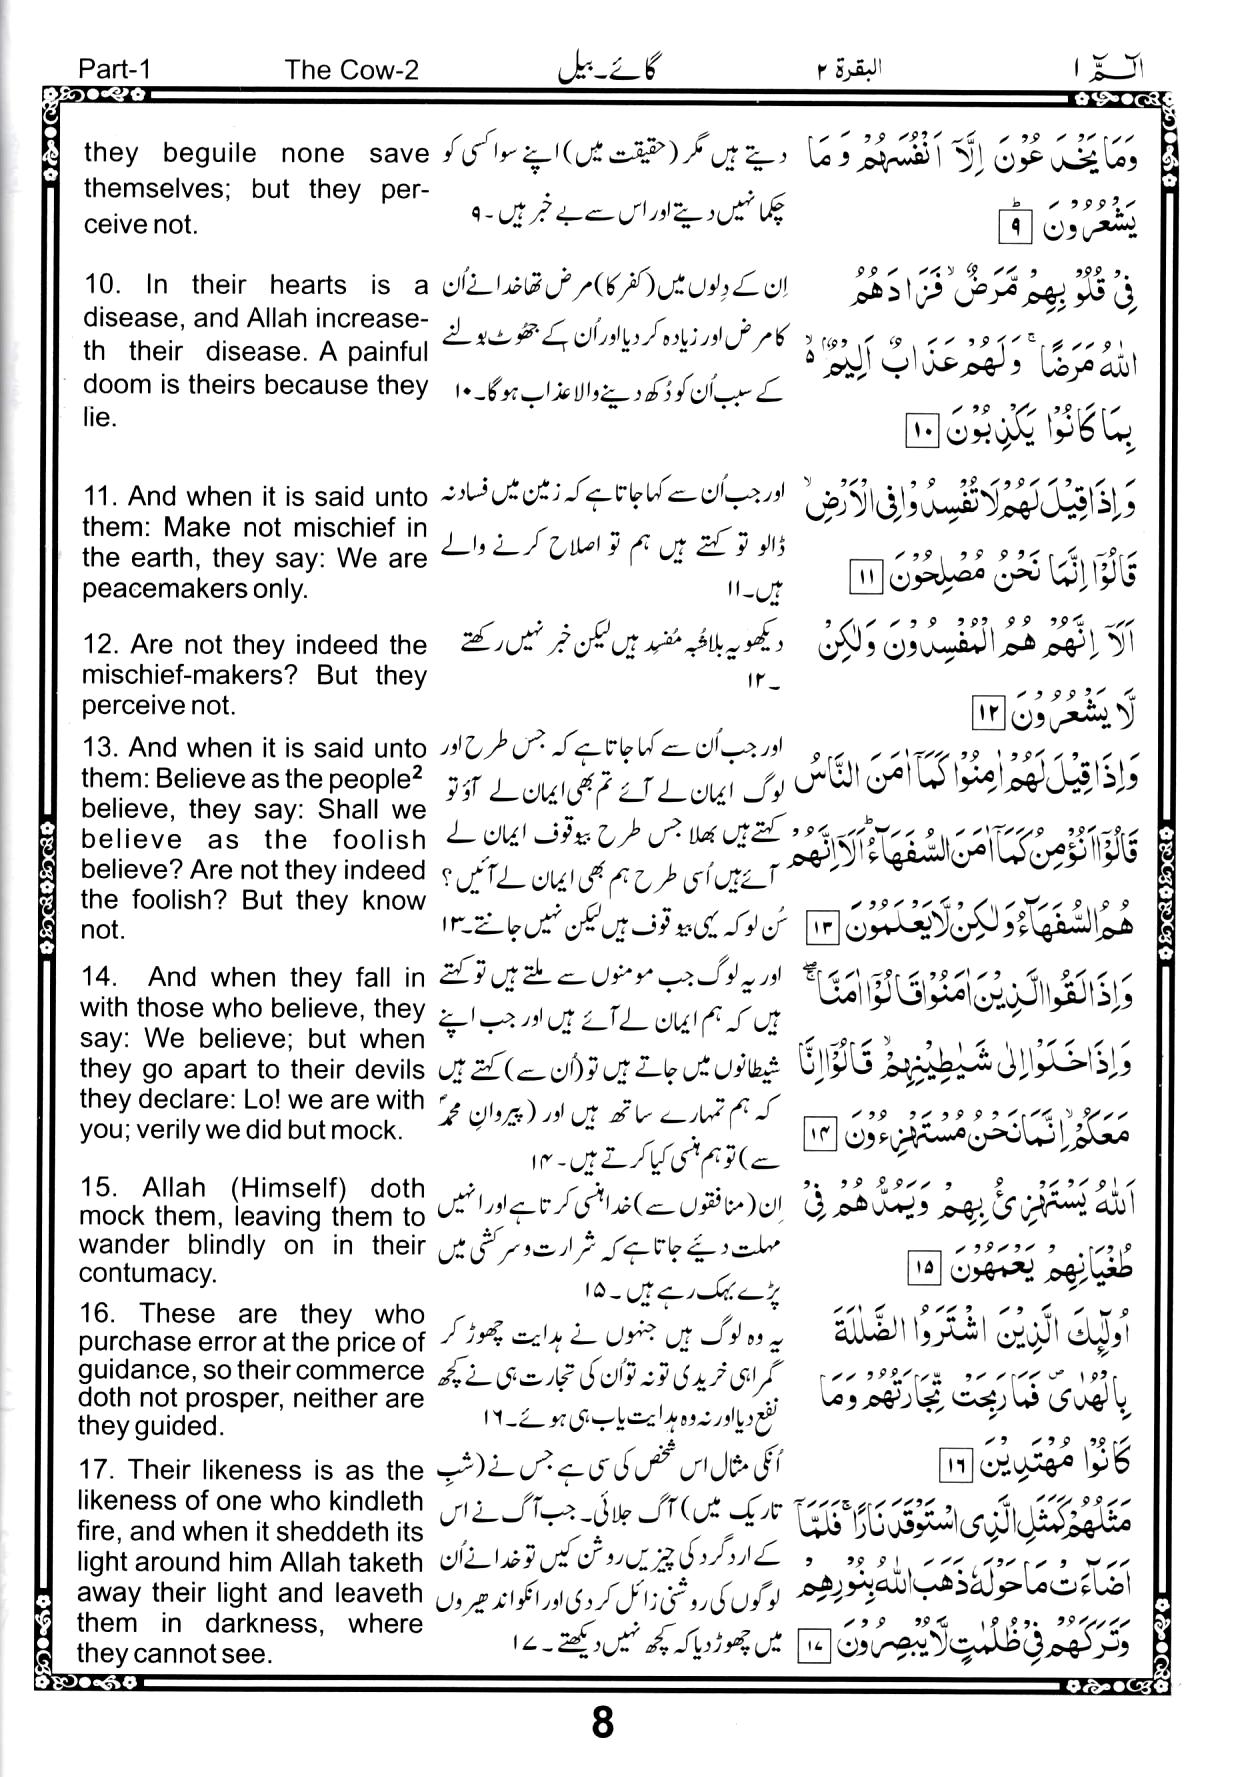 Part-1
The Cow-2
گائے۔بیل
البقرۃ ۲
الٓمّٓ ۱
they beguile none save
themselves; but they per-
ceive not.
10. In their hearts is a
disease, and Allah increase-
th their disease. A painful
doom is theirs because they
lie.
11. And when it is said unto
them: Make not mischief in
the earth, they say: We are
peacemakers only.
12. Are not they indeed the
mischief-makers? But they
perceive not.
13. And when it is said unto
them: Believe as the people²
believe, they say: Shall we
believe as the foolish
believe? Are not they indeed
the foolish? But they know
not.
14. And when they fall in
with those who believe, they
say: We believe; but when
they go apart to their devils
they declare: Lo! we are with
you; verily we did but mock.
15. Allah (Himself) doth
mock them, leaving them to
wander blindly on in their
contumacy.
16. These are they who
purchase error at the price of
guidance, so their commerce
doth not prosper, neither are
they guided.
17. Their likeness is as the
likeness of one who kindleth
fire, and when it sheddeth its
light around him Allah taketh
away their light and leaveth
them in darkness, where
they cannot see.
دیتے ہیں مگر (حقیقت میں) اپنے سوا کسی کو
چکما نہیں دیتے اور اس سے بے خبر ہیں۔۹
اِن کے دِلوں میں (کفر کا) مرض تھا خدا نے اُن
کا مرض اور زیادہ کر دیا اور اُن کے جھوٹ بولنے
کے سبب اُن کو دُکھ دینے والا عذاب ہو گا۔۱۰
اور جب اُن سے کہا جاتا ہے کہ زمین میں فساد نہ
ڈالو تو کہتے ہیں ہم تو اصلاح کرنے والے
ہیں۔۱۱
دیکھو یہ بلاشُبہ مُفسِد ہیں لیکن خبر نہیں رکھتے
۔۱۲
اور جب اُن سے کہا جاتا ہے کہ جس طرح اور
لوگ ایمان لے آئے تم بھی ایمان لے آؤ تو
کہتے ہیں بھلا جس طرح بیوقوف ایمان لے
آئے ہیں اُسی طرح ہم بھی ایمان لے آئیں؟
سُن لو کہ یہی بیوقوف ہیں لیکن نہیں جانتے۔۱۳
اور یہ لوگ جب مومنوں سے ملتے ہیں تو کہتے
ہیں کہ ہم ایمان لے آئے ہیں اور جب اپنے
شیطانوں میں جاتے ہیں تو (اُن سے) کہتے ہیں
کہ ہم تمہارے ساتھ ہیں اور (پیروانِ محمدؐ
سے) تو ہم ہنسی کیا کرتے ہیں۔۱۴
اِن (منافقوں سے) خدا ہنسی کرتا ہے اور انہیں
مہلت دیئے جاتا ہے کہ شرارت و سرکشی میں
پڑے بہک رہے ہیں۔۱۵
یہ وہ لوگ ہیں جنہوں نے ہدایت چھوڑ کر
گمراہی خریدی تو نہ تو اُن کی تجارت ہی نے کچھ
نفع دیا اور نہ وہ ہدایت یاب ہی ہوئے۔۱۶
اُنکی مثال اس شخص کی سی ہے جس نے (شبِ
تاریک میں) آگ جلائی۔ جب آگ نے اس
کے اردگرد کی چیزیں روشن کیں تو خدا نے اُن
لوگوں کی روشنی زائل کر دی اور انکو اندھیروں
میں چھوڑ دیا کہ کچھ نہیں دیکھتے۔۱۷
وَمَا يَخْدَعُوْنَ اِلَّآ اَنْفُسَهُمْ وَمَا
يَشْعُرُوْنَ ؕ ۹
فِىْ قُلُوْبِهِمْ مَّرَضٌ ۙ فَزَادَهُمُ
اللّٰهُ مَرَضًا ۚ وَلَهُمْ عَذَابٌ اَلِيْمٌۢ ۙ ۵
بِمَا كَانُوْا يَكْذِبُوْنَ ۱۰
وَاِذَا قِيْلَ لَهُمْ لَا تُفْسِدُوْا فِى الْاَرْضِ ۙ
قَالُوْٓا اِنَّمَا نَحْنُ مُصْلِحُوْنَ ۱۱
اَلَآ اِنَّهُمْ هُمُ الْمُفْسِدُوْنَ وَلٰكِنْ
لَّا يَشْعُرُوْنَ ۱۲
وَاِذَا قِيْلَ لَهُمْ اٰمِنُوْا كَمَآ اٰمَنَ النَّاسُ
قَالُوْٓا اَنُؤْمِنُ كَمَآ اٰمَنَ السُّفَهَآءُ ؕ اَلَآ اِنَّهُمْ
هُمُ السُّفَهَآءُ وَلٰكِنْ لَّا يَعْلَمُوْنَ ۱۳
وَاِذَا لَقُوا الَّذِيْنَ اٰمَنُوْا قَالُوْٓا اٰمَنَّا ۖۚ
وَاِذَا خَلَوْا اِلٰى شَيٰطِيْنِهِمْ ۙ قَالُوْٓا اِنَّا
مَعَكُمْ ۙ اِنَّمَا نَحْنُ مُسْتَهْزِءُوْنَ ۱۴
اَللّٰهُ يَسْتَهْزِئُ بِهِمْ وَيَمُدُّهُمْ فِىْ
طُغْيَانِهِمْ يَعْمَهُوْنَ ۱۵
اُولٰٓئِكَ الَّذِيْنَ اشْتَرَوُا الضَّلٰلَةَ
بِالْهُدٰى ۪ فَمَا رَبِحَتْ تِّجَارَتُهُمْ وَمَا
كَانُوْا مُهْتَدِيْنَ ۱۶
مَثَلُهُمْ كَمَثَلِ الَّذِى اسْتَوْقَدَ نَارًا ۚ فَلَمَّآ
اَضَآءَتْ مَا حَوْلَهٗ ذَهَبَ اللّٰهُ بِنُوْرِهِمْ
وَتَرَكَهُمْ فِىْ ظُلُمٰتٍ لَّا يُبْصِرُوْنَ ۱۷
8